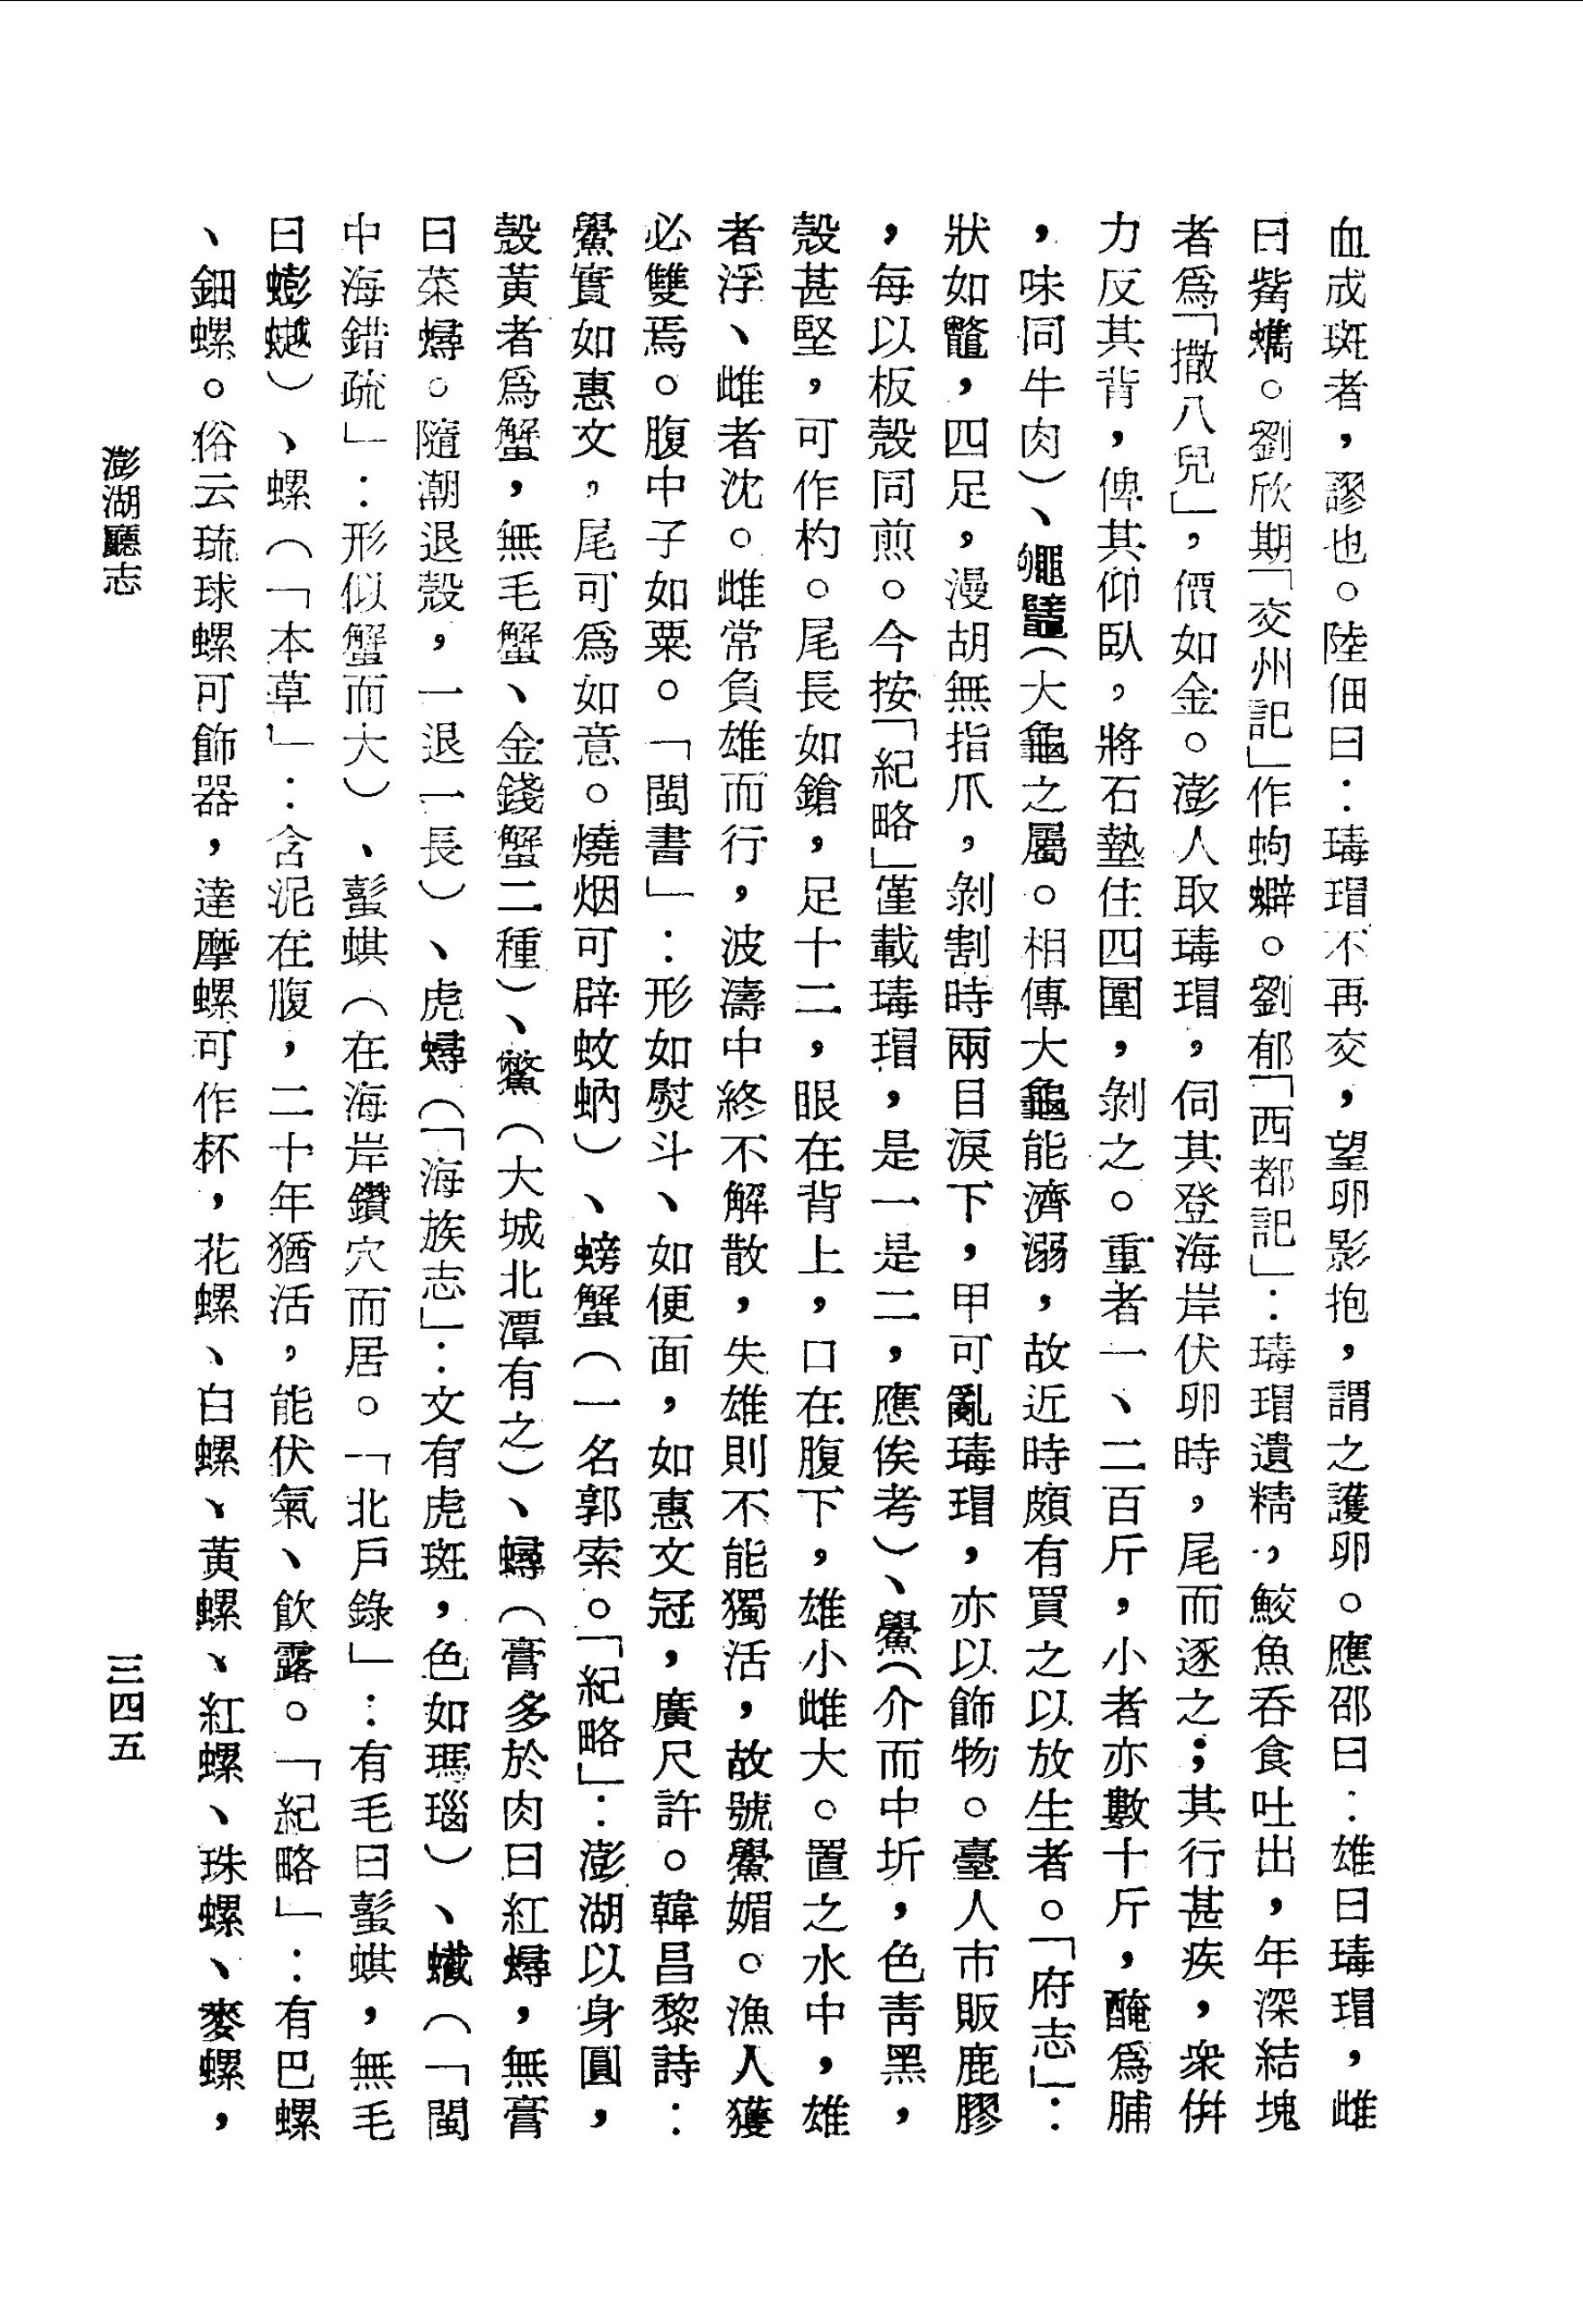 血成斑者，謬也。陸佃曰：瑇瑁不再交，望卵影抱，謂之護卵。應邵曰：雄曰瑇瑁，雌
曰觜蠵。劉欣期「交州記」作蚼蠏。劉郁「西都記」：瑇瑁遺精，鮫魚吞食吐出，年深結塊
者爲「撒八兒」，價如金。澎人取瑇瑁，伺其登海岸伏卵時，尾而逐之；其行甚疾，衆併
力反其背，俾其仰臥，將石墊住四圍，剝之。重者一、二百斤，小者亦數十斤，醃爲脯
，味同牛肉）、（大龜之屬。相傳大龜能濟溺，故近時頗有買之以放生者。「府志」：
狀如鼈，四足，漫胡無指爪，剝割時兩目淚下，甲可亂瑇瑁，亦以飾物。臺人市販鹿膠
，每以板殼同煎。今按「紀略」僅載瑇瑁，是一是二，應俟考）、鱟（介而中坼，色靑黑，
殼甚堅，可作杓。尾長如鎗，足十二，眼在背上，口在腹下，雄小雌大。置之水中，雄
者浮、雌者沈。雌常負雄而行，波濤中終不解散，失雄則不能獨活，故號鱟媚。漁人獲
必雙焉。腹中子如粟。「閩書」：形如熨斗、如便面，如惠文冠，廣尺許。韓昌黎詩：
鱟實如惠文，尾可爲如意。燒烟可辟蚊蚋）、螃蟹（一名郭索。「紀略」：澎湖以身圓，
殼黃者爲蟹，無毛蟹、金錢蟹二種）、鱉（大城北潭有之）、蟳（膏多於肉曰紅蟳，無膏
曰菜蟳。隨潮退殼，一退一長）、虎蟳（「海族志」：文有虎斑，色如瑪瑙）、蠘（「閩
中海錯疏」：形似蟹而大）、蟚蜞（在海岸鑽穴而居。「北戶錄」：有毛曰蟚蜞，無毛
曰蟛𧑅）、螺（「本草」：含泥在腹，二十年猶活，能伏氣、飲露。「紀略」：有巴螺
、鈿螺。俗云琉球螺可飾器，達摩螺可作杯，花螺、白螺、黃螺、紅螺、珠螺、麥螺，
澎湖廳志
三四五